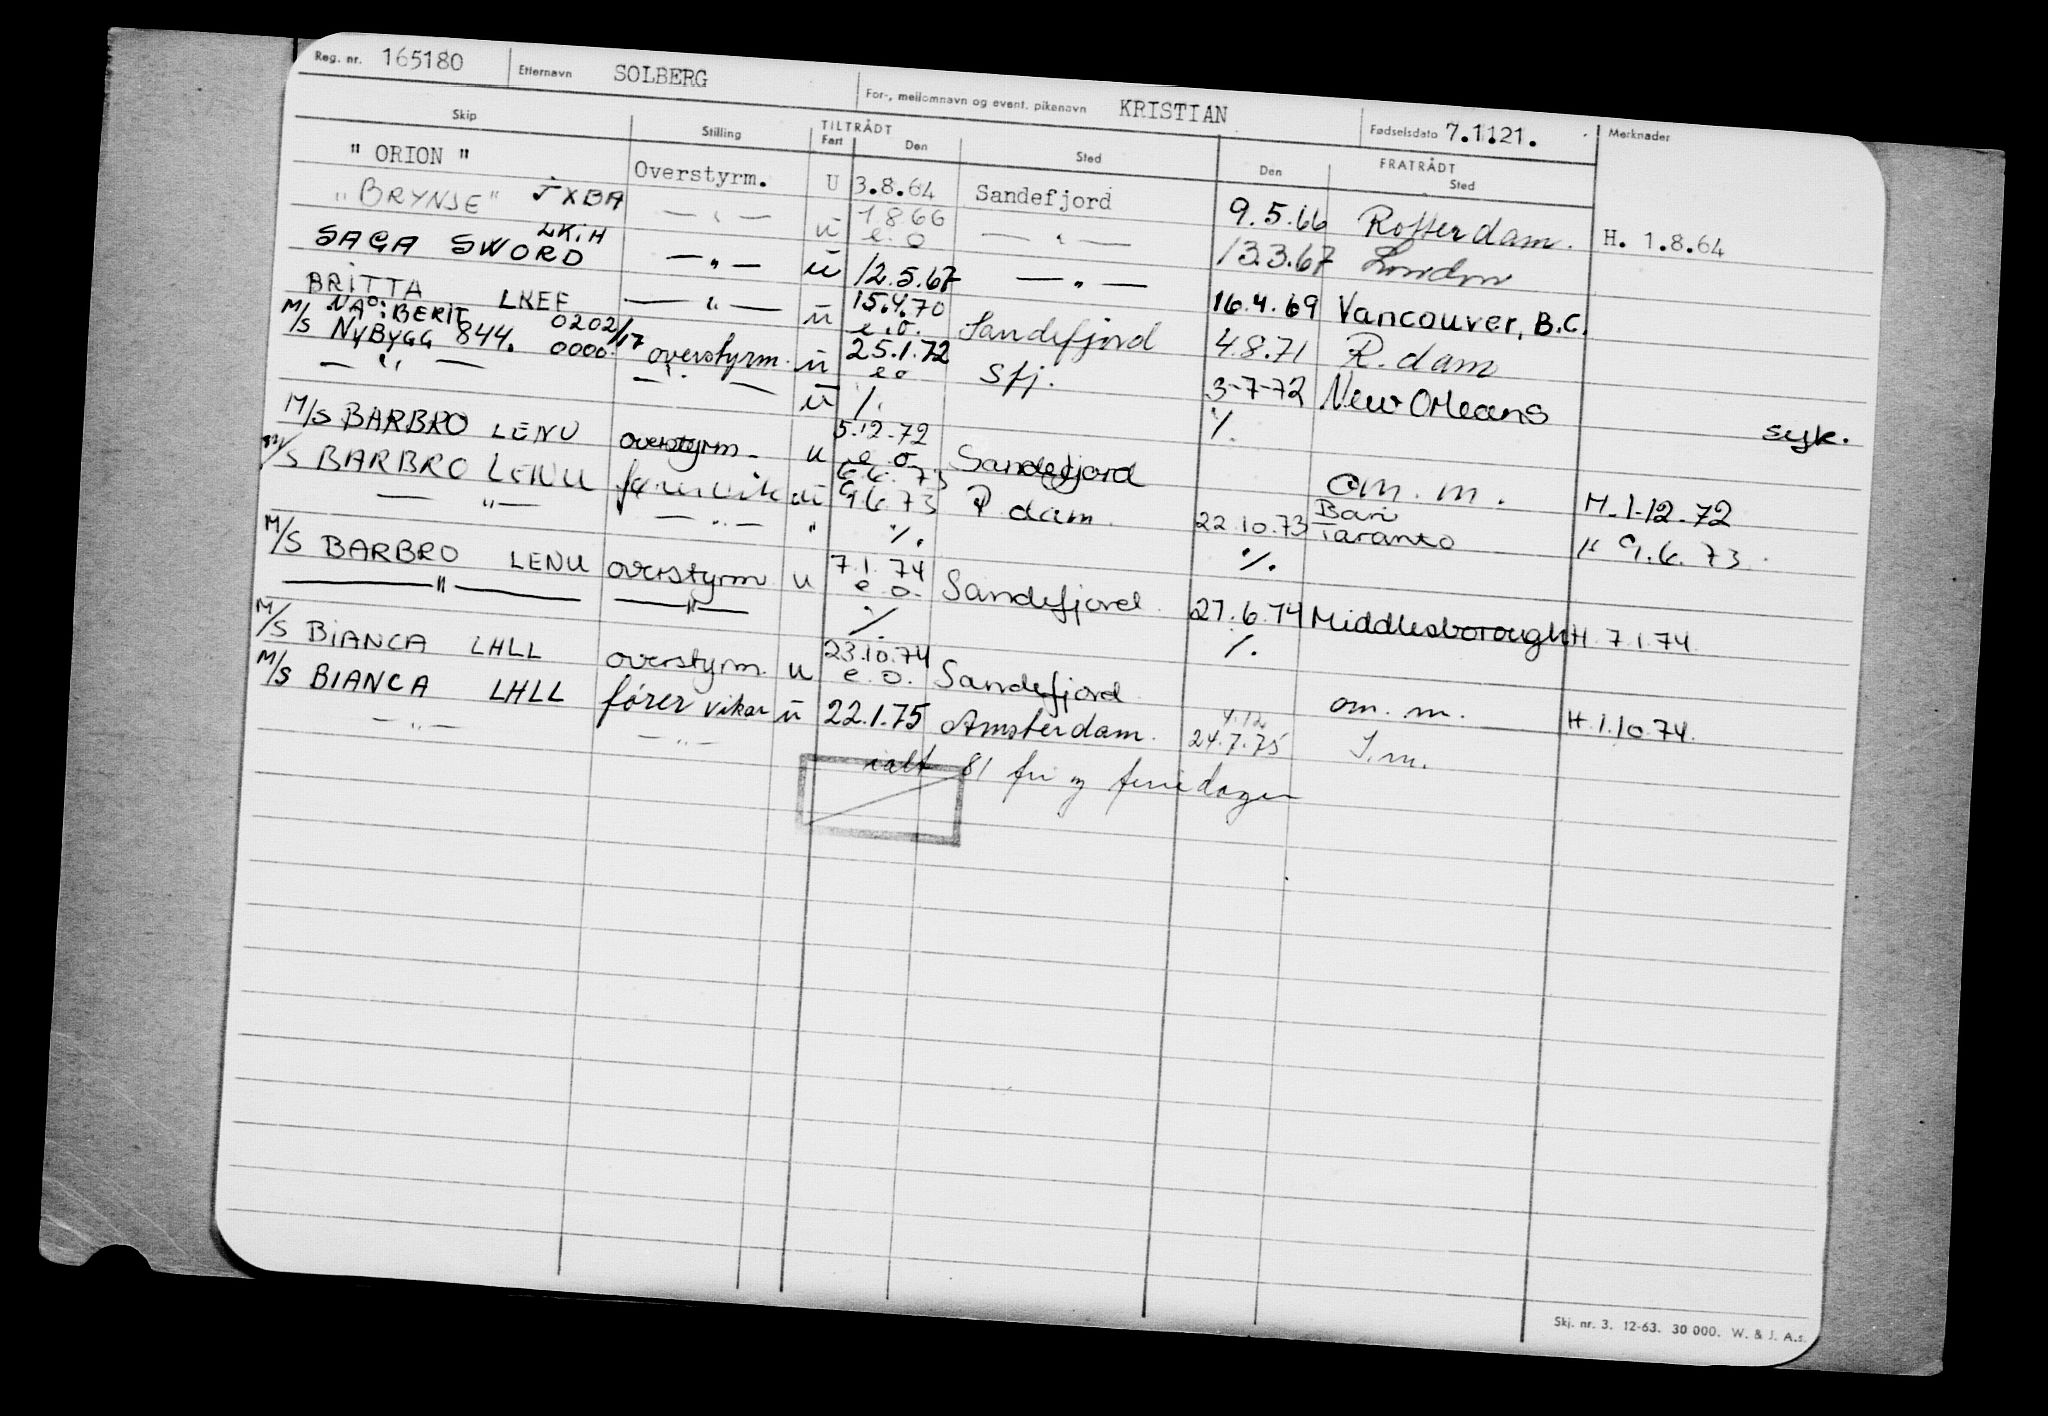 Reg. nr. 165180 Etternavn SOLBERG For-, mellomnavn og event. pikenavn KRISTIAN Fødselsdato 7.1121. Merknader
Skip Stilling TILTRÅDT Fart Den Sted FRATRÅDT Den Sted
" ORION " Overstyrm. U 3.8.64 Sandefjord 9.5.66 Rotterdam. H. 1.8.64
"BRYNJE" JXBA — " — ü 1.8.66 e.o — " — 13.3.67 London
SAGA SWORD LKiH — " — ü 12.5.67 — " — 16.4.69 Vancouver, B.C.
BRiTTA LKEF — " — ü 15.4.70 e.o. Sandefjord 4.8.71 R.dam
M/S NYBYGG 844. NÅ: BERiT 0202/17 0000. overstyrm. ü 25.1.72 eo Sfj. 3-7-72 New Orleans
— " — — " — ü %. %. syk.
M/S BARBRO LENU overstyrm. u 5.12.72 e.o. Sandefjord om. m. H. 1-12-72
M/S BARBRO LENU 9.6.73 R dam. 22.10.73 Bari Taranto H 9.6.73.
— " — — " — " %. %.
M/S BARBRO LENU overstyrm u 7.1.74 e.o. Sandefjord. 27.6.74 Middlesborough H. 7.1.74.
— " — — " — %. %.
M/S BiANCA LHLL overstyrm. u 23.10.74 e.o. Sandefjord om. m. H.1.10.74.
M/S BIANCA LHLL fører vikar ü 22.1.75 Amsterdam. 24.7.75 S.m.
— " — — " —
ialt 81 fri og feriedager
Skj. nr. 3. 12-63. 30 000. W. & J. A.s.